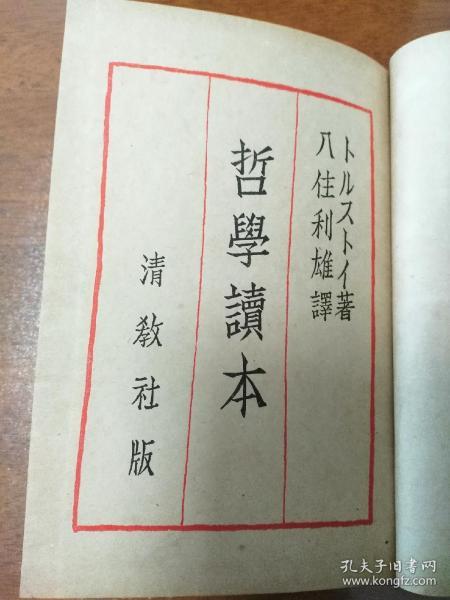 トルストイ著
八住利雄譯
哲學讀本
清教社版
孔夫子旧书网
www.kongfz.com